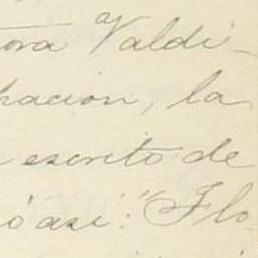 ora Valdi-
pacion, la
escrito de
ó asi: "Flo-